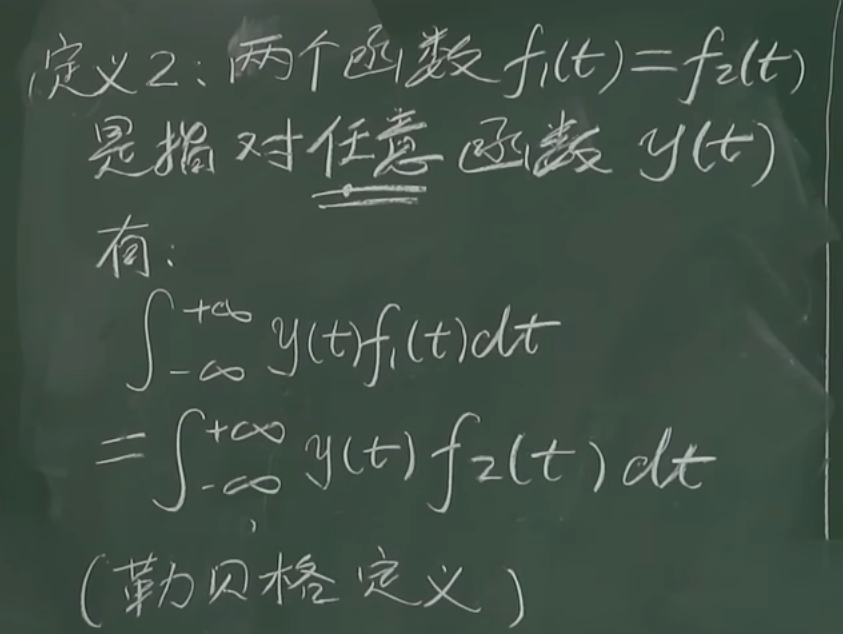 定义2:两个函数 f₁(t)=f₂(t)
是指对任意函数 y(t)
有:
∫₋∞⁺∞ y(t)f₁(t)dt
=∫₋∞⁺∞ y(t)f₂(t)dt
(勒贝格定义)